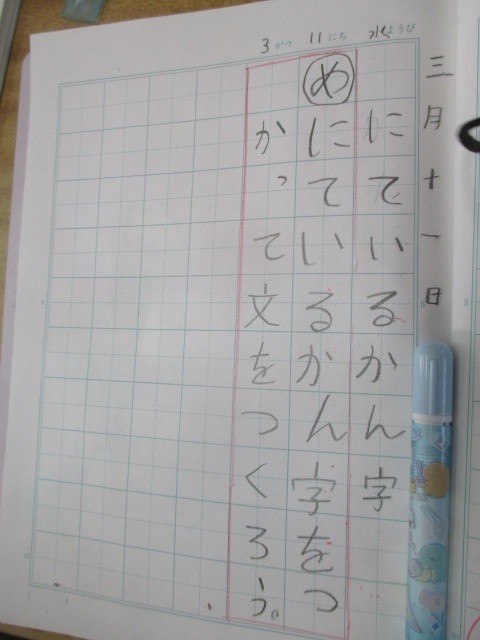 3がつ 11にち 水ようび
三月十一日
にているかん字
めにているかん字をつ
かって文をつくろう。